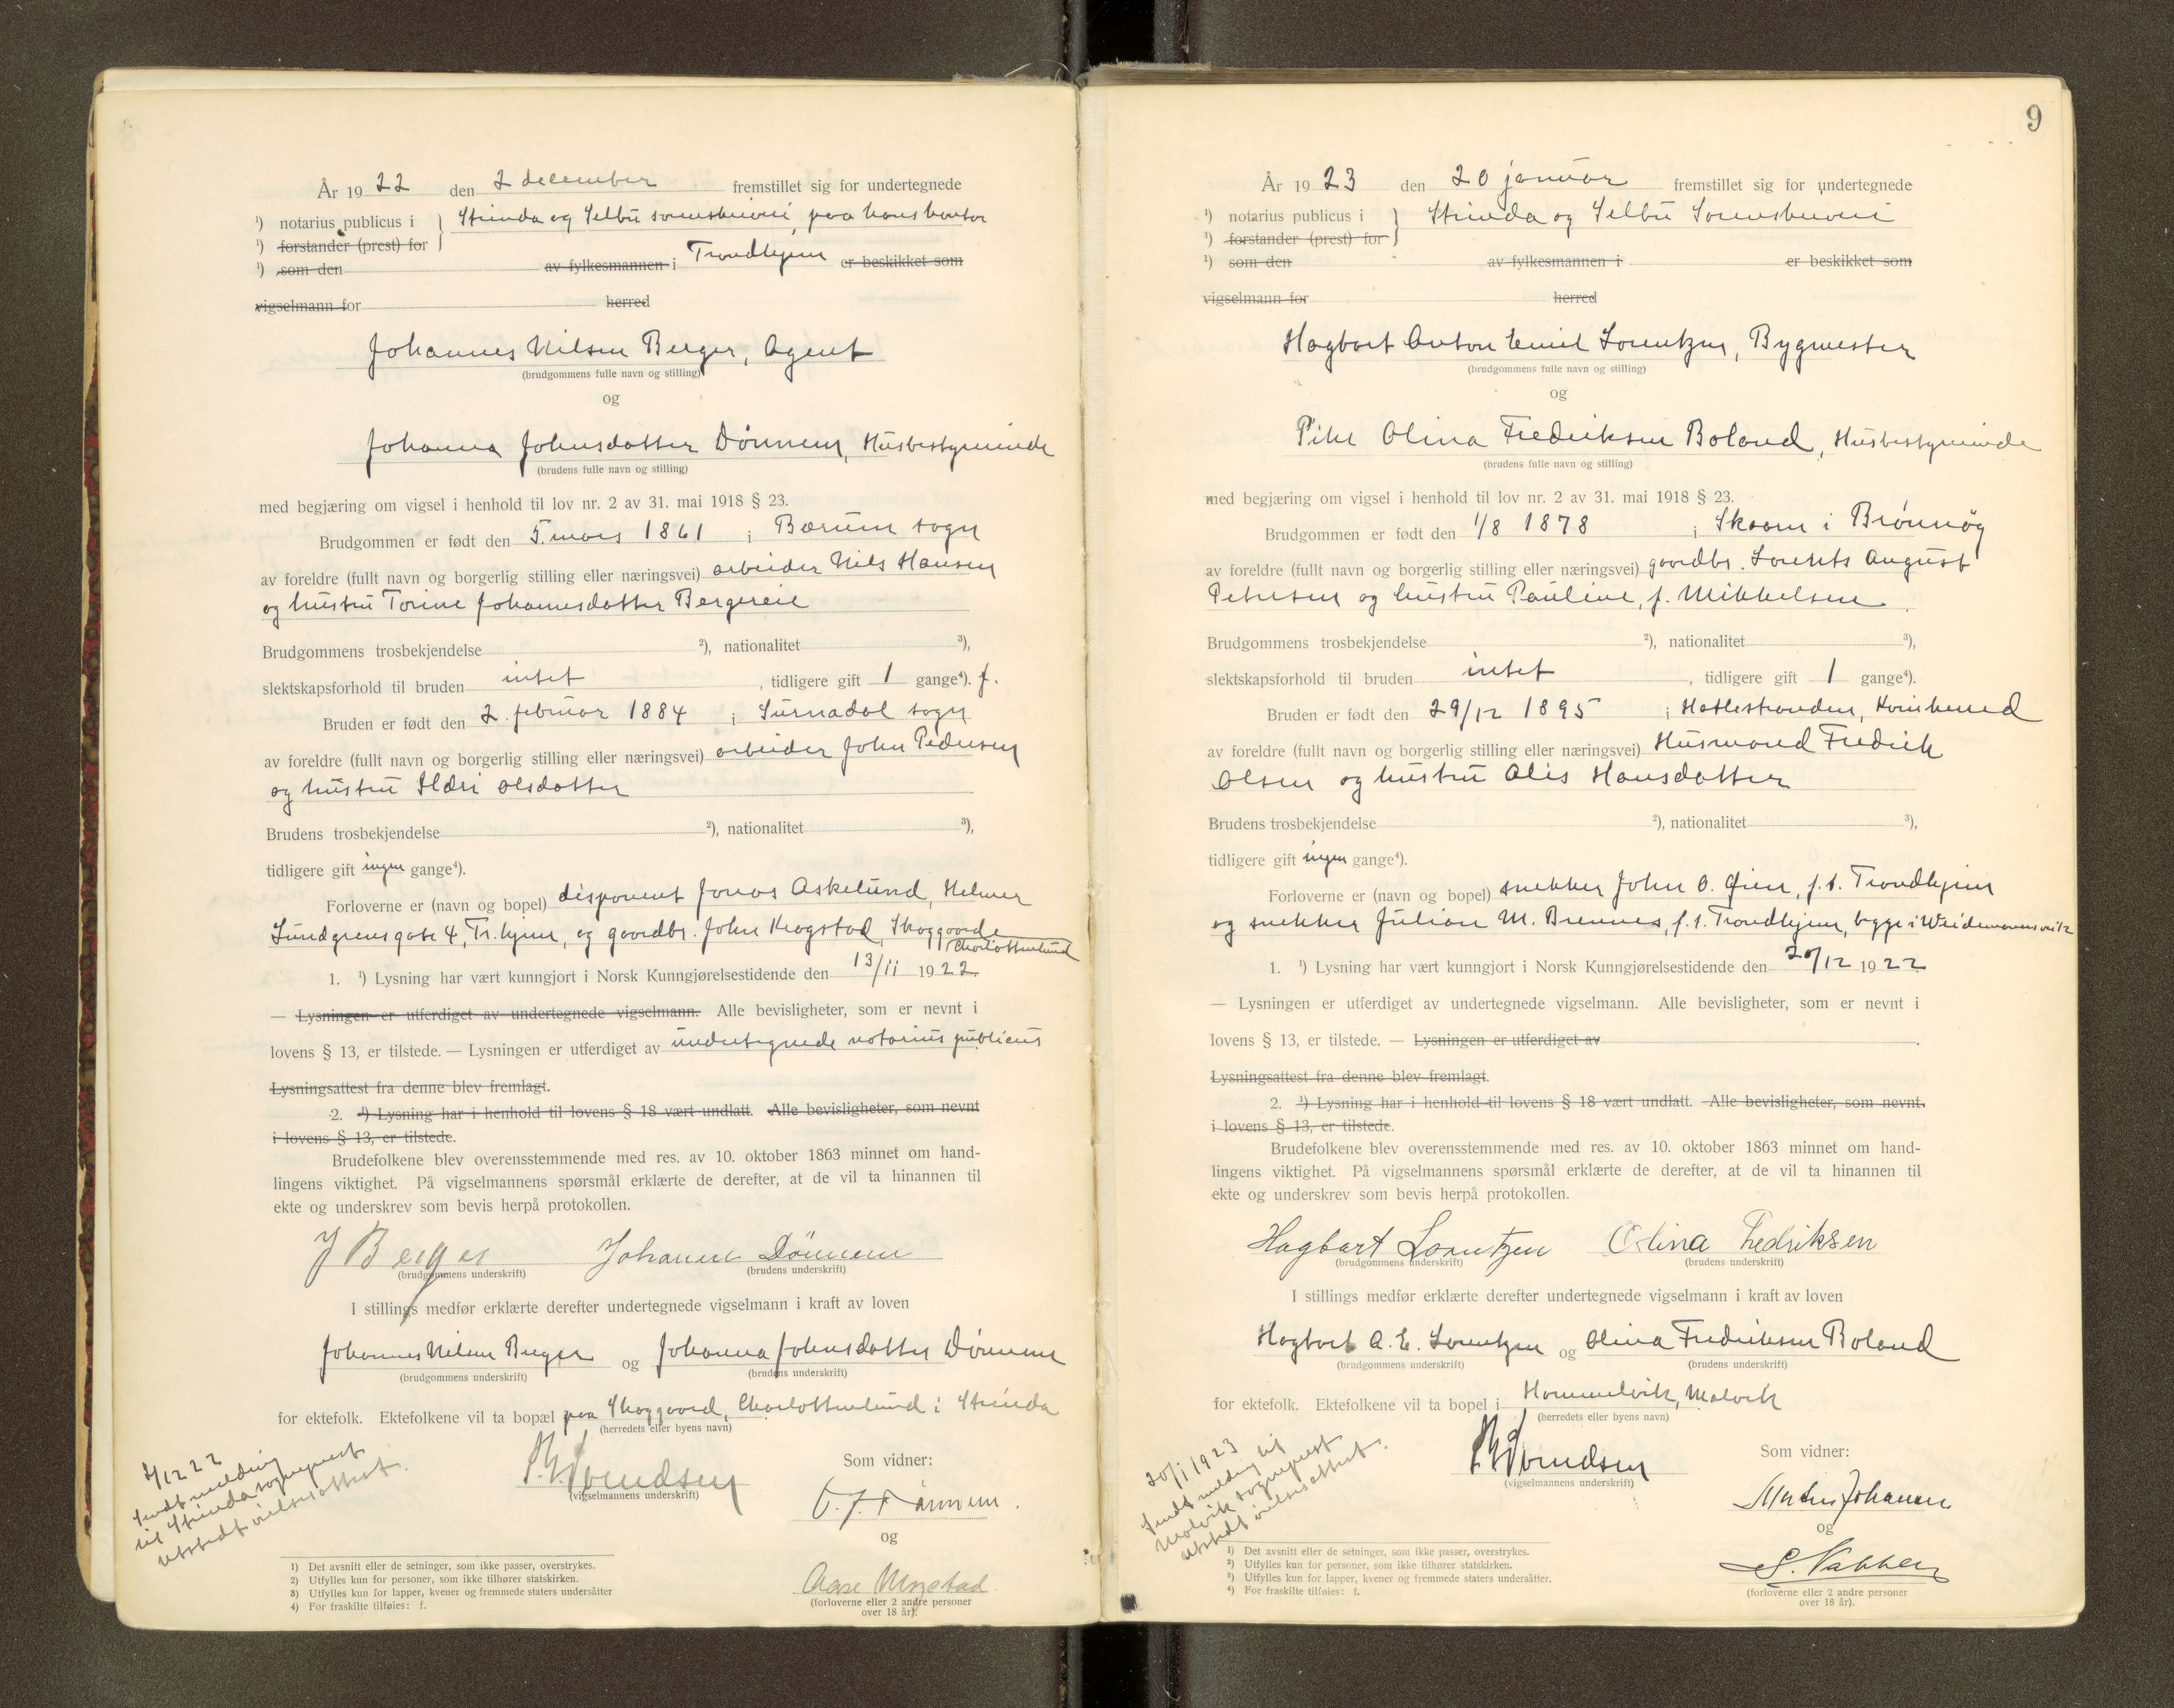 År 19 22 den 2 december fremstillet sig for undertegnede
¹) notarius publicus i } Strinda og Selbu sorenskriveri, paa hans kontor
¹) forstander (prest) for
¹) som den av fylkesmannen i Trondhjem er beskikket som
vigselmann for herred
Johannes Nilsen Berger, Agent
(brudgommens fulle navn og stilling)
og
Johanna Johnsdatter Dönnem, Husbestyrerinde
(brudens fulle navn og stilling)
med begjæring om vigsel i henhold til lov nr. 2 av 31. mai 1918 § 23.
Brudgommen er født den 5. mars 1861 i Bærum sogn
av foreldre (fullt navn og borgerlig stilling eller næringsvei) arbeider Nils Hansen
og hustru Torine Johannesdatter Bergereie
Brudgommens trosbekjendelse ²), nationalitet ³),
slektskapsforhold til bruden intet , tidligere gift 1 gange⁴). f.
Bruden er født den 2. februar 1884 i Surnadal sogn
av foreldre (fullt navn og borgerlig stilling eller næringsvei) arbeider John Pedersen
og hustru Ildri Olsdatter
Brudens trosbekjendelse ²), nationalitet ³),
tidligere gift ingen gange⁴).
Forloverne er (navn og bopel) disponent Jonas Askelund, Helmer
Lundgrensgate 4, Tr.hjem, og gaardbr. John Krogstad, Skoggaarde
Charlottenlund
1. ¹) Lysning har vært kunngjort i Norsk Kunngjørelsestidende den 13/11 1922.
— Lysningen er utferdiget av undertegnede vigselmann. Alle bevisligheter, som er nevnt i
lovens § 13, er tilstede. — Lysningen er utferdiget av undertegnede notarius publicus
Lysningsattest fra denne blev fremlagt.
2. ¹) Lysning har i henhold til lovens § 18 vært undlatt. Alle bevisligheter, som nevnt
i lovens § 13, er tilstede.
Brudefolkene blev overensstemmende med res. av 10. oktober 1863 minnet om hand-
lingens viktighet. På vigselmannens spørsmål erklærte de derefter, at de vil ta hinannen til
ekte og underskrev som bevis herpå protokollen.
J Berger Johanne Dönnem
(brudgommens underskrift) (brudens underskrift)
I stillings medfør erklærte derefter undertegnede vigselmann i kraft av loven
Johannes Nilsen Berger og Johanna Johnsdatter Dönnem
(brudgommens underskrift) (brudens underskrift)
for ektefolk. Ektefolkene vil ta bopæl paa Skoggaard, Charlottenlund i Strinda
(herredets eller byens navn)
2/12 22
Sendt melding
til Strinda sogneprest
utstedt vielsesattest.
(vigselmannens underskrift)
Som vidner:
og
Aase Mogstad
(forloverne eller 2 andre personer
over 18 år).
1) Det avsnitt eller de setninger, som ikke passer, overstrykes.
2) Utfylles kun for personer, som ikke tilhører statskirken.
3) Utfylles kun for lapper, kvener og fremmede staters undersåtter
4) For fraskilte tilføies: f.
9
År 19 23 den 20 januar fremstillet sig for undertegnede
¹) notarius publicus i } Strinda og Selbu Sorenskriveri
¹) forstander (prest) for
¹) som den av fylkesmannen i er beskikket som
vigselmann for herred
Hagbart Anton Emil Lorentzen, Bygmester
(brudgommens fulle navn og stilling)
og
Pike Olina Fredriksen Boland, Husbestyrerinde
(brudens fulle navn og stilling)
med begjæring om vigsel i henhold til lov nr. 2 av 31. mai 1918 § 23.
Brudgommen er født den 1/8 1878 i Skaren i Brönnöy
av foreldre (fullt navn og borgerlig stilling eller næringsvei) gaardbr. Lorents August
Petersen og hustru Pauline, f. Mikkelsen
Brudgommens trosbekjendelse ²), nationalitet ³),
slektskapsforhold til bruden intet , tidligere gift 1 gange⁴).
Bruden er født den 29/12 1895 i Hatlestranden, Kvinherred
av foreldre (fullt navn og borgerlig stilling eller næringsvei) Husmand Fredrik
Olsen og hustru Alis Hansdatter
Brudens trosbekjendelse ²), nationalitet ³),
tidligere gift ingen gange⁴).
Forloverne er (navn og bopel) snekker John O. Øien, f.t. Trondhjem
og snekker Julian M. Brennes, f.t. Trondhjem, begge i
1. ¹) Lysning har vært kunngjort i Norsk Kunngjørelsestidende den 20/12 1922
— Lysningen er utferdiget av undertegnede vigselmann. Alle bevisligheter, som er nevnt i
lovens § 13, er tilstede. — Lysningen er utferdiget av .
Lysningsattest fra denne blev fremlagt.
2. ¹) Lysning har i henhold til lovens § 18 vært undlatt. Alle bevisligheter, som nevnt.
i lovens § 13, er tilstede.
Brudefolkene blev overensstemmende med res. av 10. oktober 1863 minnet om hand-
lingens viktighet. På vigselmannens spørsmål erklærte de derefter, at de vil ta hinannen til
ekte og underskrev som bevis herpå protokollen.
Hagbart Lorntzen Olina Fredriksen
(brudgommens underskrift) (brudens underskrift)
I stillings medfør erklærte derefter undertegnede vigselmann i kraft av loven
Hagbart A. E. Lorentzen og Olina Fredriksen Boland
(brudgommens underskrift) (brudens underskrift)
for ektefolk. Ektefolkene vil ta bopel i Hommelvik, Malvik
(herredets eller byens navn)
20/1 1923
Sendt melding til
Malvik sogneprest
utstedt vielsesattest.
(vigselmannens underskrift)
Som vidner:
og
(forloverne eller 2 andre personer
over 18 år).
¹) Det avsnitt eller de setninger, som ikke passer, overstrykes.
²) Utfylles kun for personer, som ikke tilhører statskirken.
³) Utfylles kun for lapper, kvener og fremmede staters undersåtter.
⁴) For fraskilte tilføies: f.